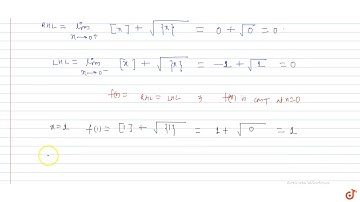 RHL = lim x→0+ [x] + √{x} = 0 + √0 = 0
LHL = lim x→0- [x] + √{x} = -1 + √1 = 0
f(0) = RHL = LHL } f(x) is cont at x=0
x=1 f(1) = [1] + √{1} = 1 + √0 = 1